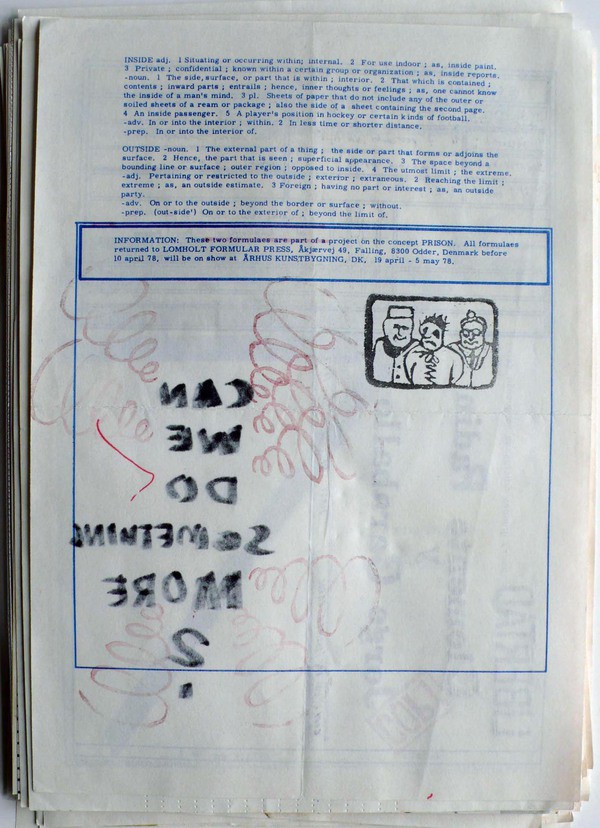 INSIDE adj. 1 Situating or occurring within; internal. 2 For use indoor ; as, inside paint.
3 Private ; confidential ; known within a certain group or organization ; as, inside reports.
-noun. 1 The side, surface, or part that is within ; interior. 2 That which is contained ;
contents ; inward parts ; entrails ; hence, inner thoughts or feelings ; as, one cannot know
the inside of a man's mind. 3 pl. Sheets of paper that do not include any of the outer or
soiled sheets of a ream or package ; also the side of a sheet containing the second page.
4 An inside passenger. 5 A player's position in hockey or certain kinds of football.
-adv. In or into the interior ; within. 2 In less time or shorter distance.
-prep. In or into the interior of.
OUTSIDE -noun. 1 The external part of a thing ; the side or part that forms or adjoins the
surface. 2 Hence, the part that is seen ; superficial appearance. 3 The space beyond a
bounding line or surface ; outer region ; opposed to inside. 4 The utmost limit ; the extreme.
-adj. Pertaining or restricted to the outside ; exterior ; extraneous. 2 Reaching the limit ;
extreme ; as, an outside estimate. 3 Foreign ; having no part or interest ; as, an outside
party.
-adv. On or to the outside ; beyond the border or surface ; without.
-prep. (out-side') On or to the exterior of ; beyond the limit of.
INFORMATION: These two formulaes are part of a project on the concept PRISON. All formulaes
returned to LOMHOLT FORMULAR PRESS, Åkjærvej 49, Falling, 8300 Odder, Denmark before
10 april 78, will be on show at ÅRHUS KUNSTBYGNING, DK, 19 april - 5 may 78.
CAN
WE
DO
SOMETHING
MORE
?
Jorge Caraballo
y
Clemente Padin
LIBERTAD